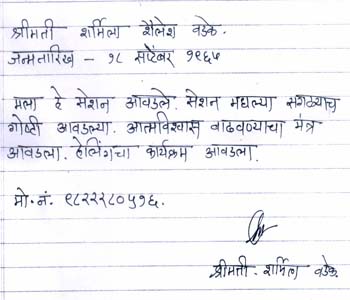 श्रीमती शर्मिला शैलेश वडके.
जन्मतारिख - १८ सप्टेंबर १९६५
मला हे सेशन आवडले. सेशन मधल्या सगळ्याच
गोष्टी आवडल्या. आत्मविश्वास वाढवण्याचा मंत्र
आवडला. हेलिंगचा कार्यक्रम आवडला.
मो. नं. ९८२२२८०५१६.
श्रीमती. शर्मिला वडके.